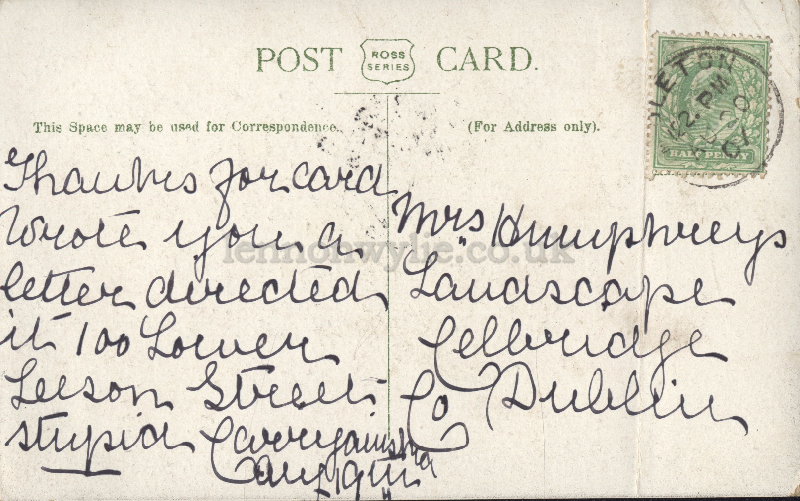 POST ROSS SERIES CARD.
This Space may be used for Correspondence.
(For Address only).
Thanks for card
Wrote you a
letter directed
it 100 Lower
Leeson Street
stupid
Mrs Humphreys
Landscape
Celbridge
Co Dublin
LETON
12. PM
HALFPENNY
lennonwylie.co.uk